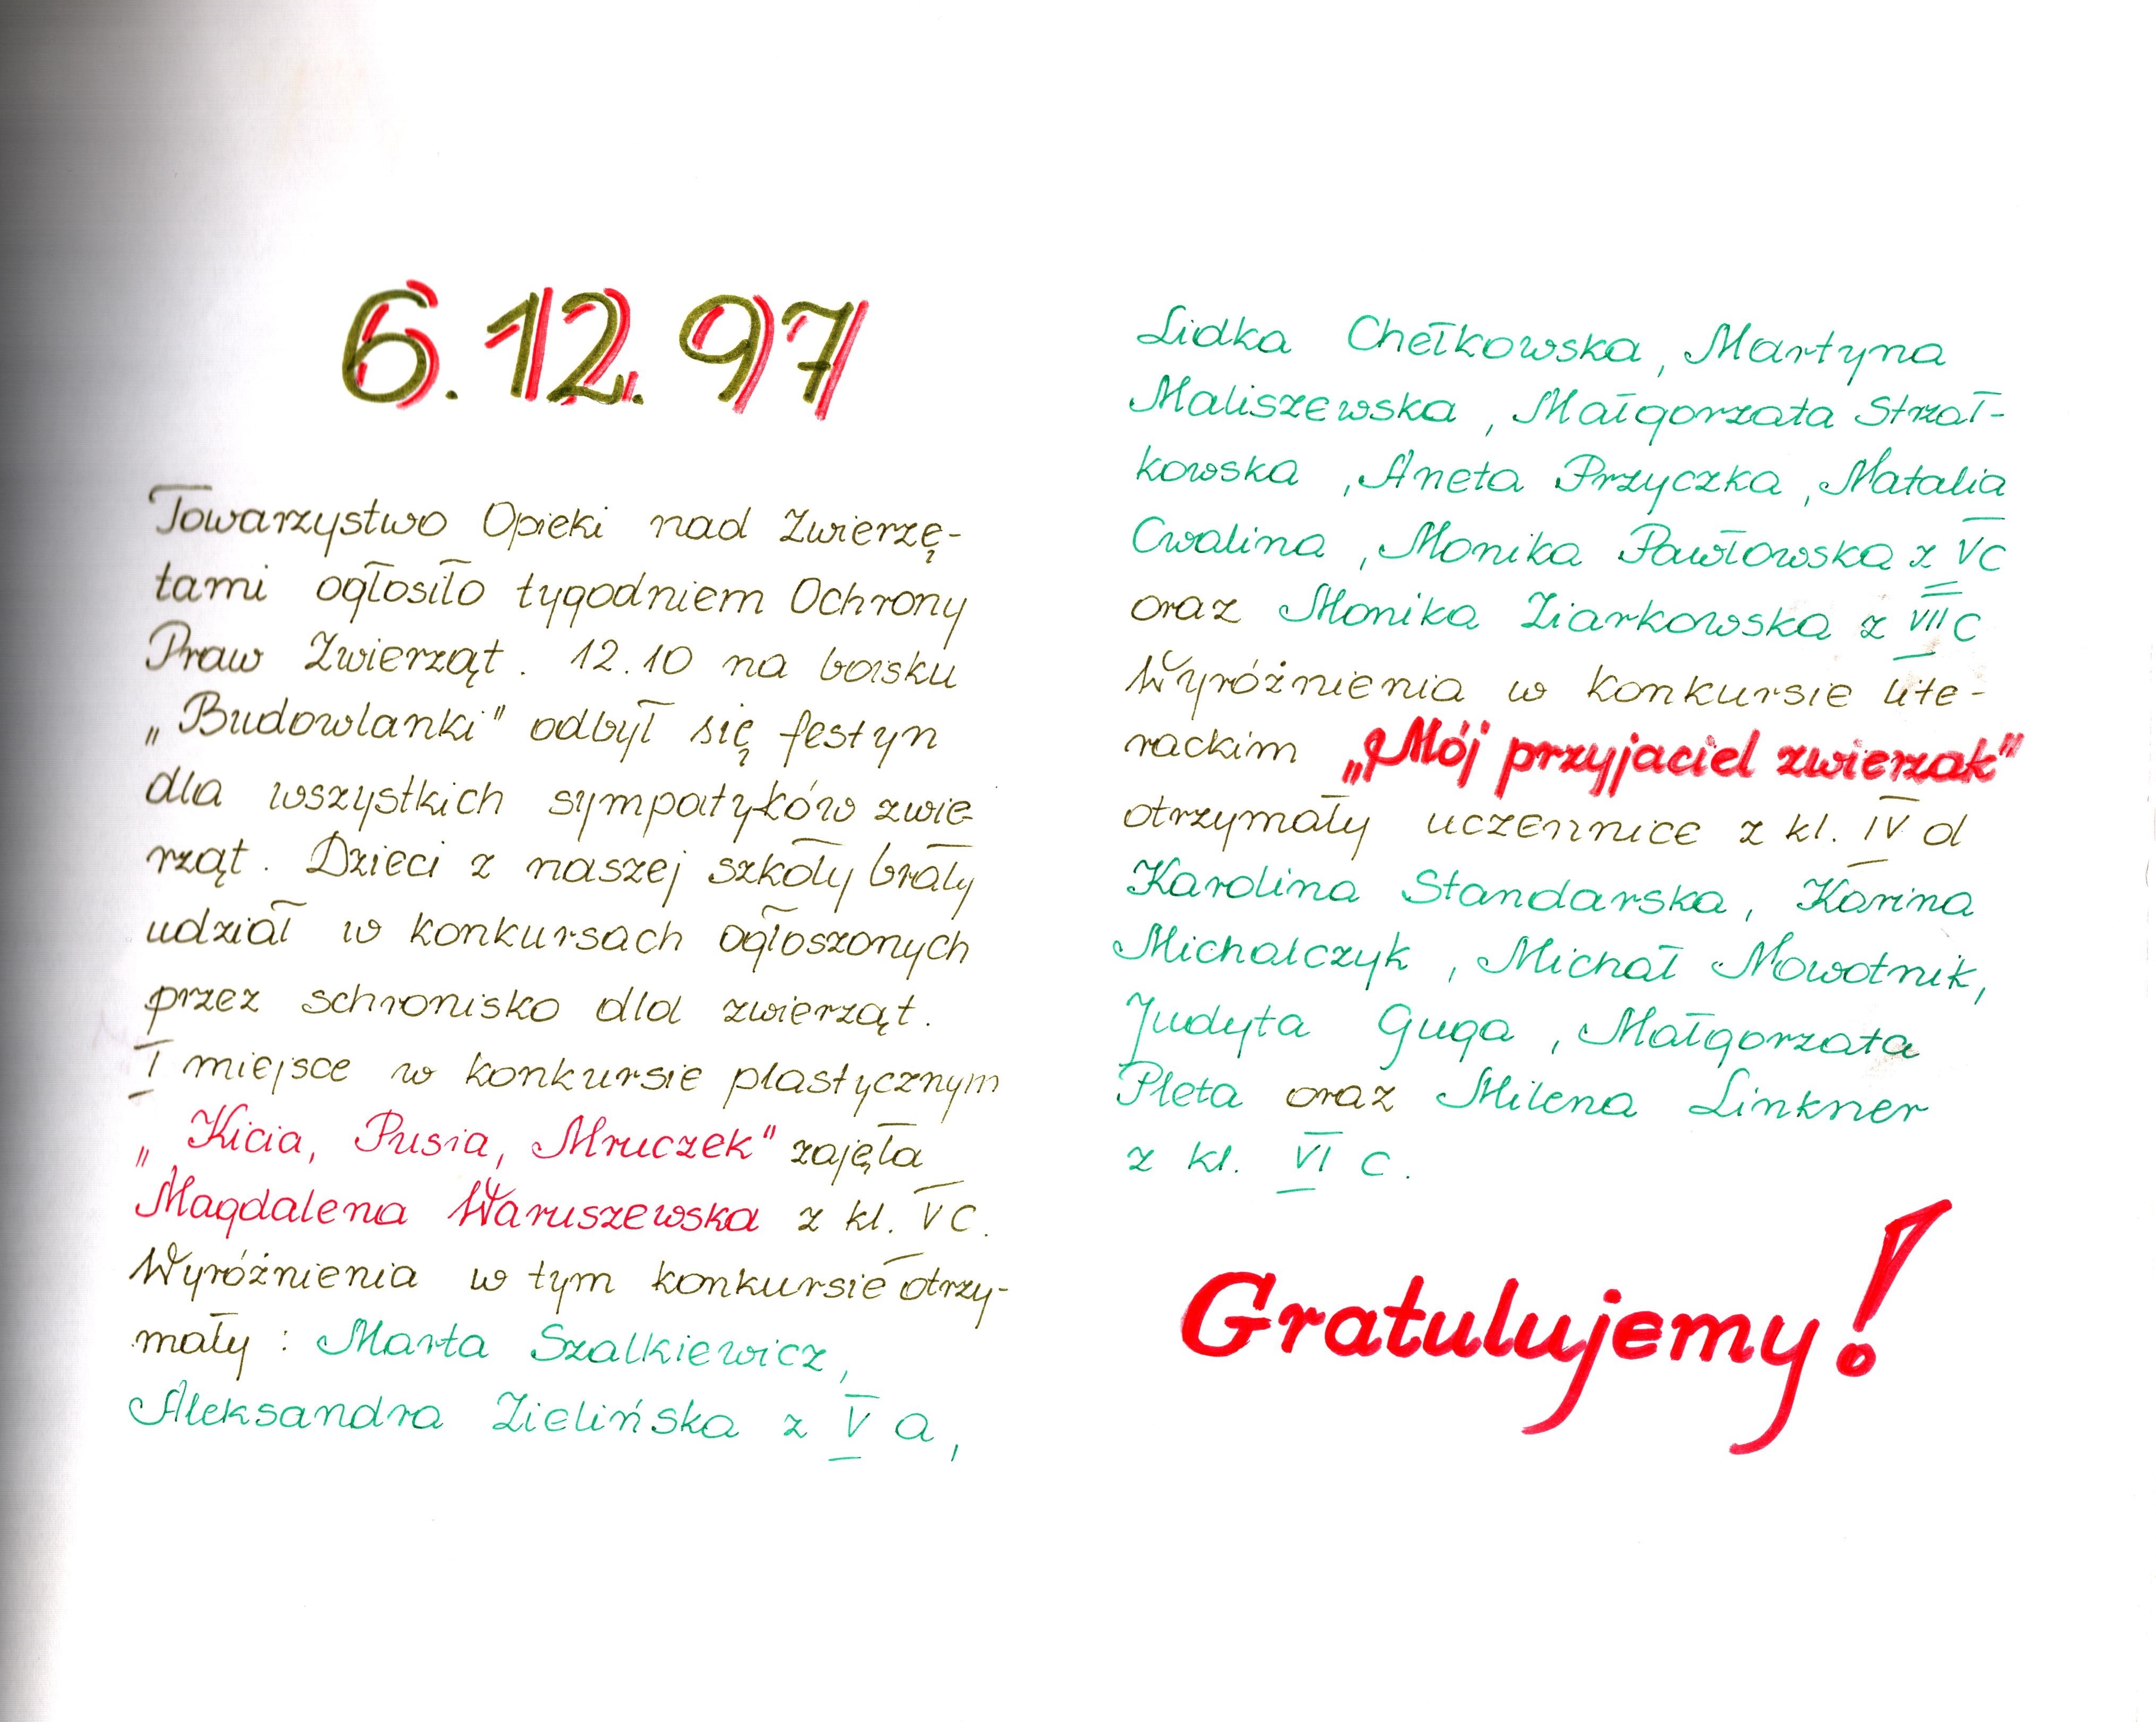 6.12.97
Towarzystwo Opieki nad Zwierzę-
tami ogłosiło tygodniem Ochrony
Praw Zwierząt. 12.10 na boisku
„Budowlanki" odbył się festyn
dla wszystkich sympatyków zwie-
rząt. Dzieci z naszej szkoły brały
udział w konkursach ogłoszonych
przez schronisko dla zwierząt.
I miejsce w konkursie plastycznym
„Kicia, Pusia, Mruczek" zajęła
Magdalena Waruszewska z kl. V C.
Wyróżnienia w tym konkursie otrzy-
mały: Marta Szalkiewicz,
Aleksandra Zielińska z V a,
Lidka Chełkowska, Martyna
Maliszewska, Małgorzata Strzał-
kowska, Aneta Przyczka, Natalia
Cwalina, Monika Pawłowska z V C
oraz Monika Ziarkowska z VII C
Wyróżnienia w konkursie lite-
rackim „Mój przyjaciel zwierzak"
otrzymały uczennice z kl. IV d
Karolina Standarska, Karina
Michalczyk, Michał Nowotnik,
Judyta Guga, Małgorzata
Pleta oraz Milena Linkner
z kl. VI c.
Gratulujemy!